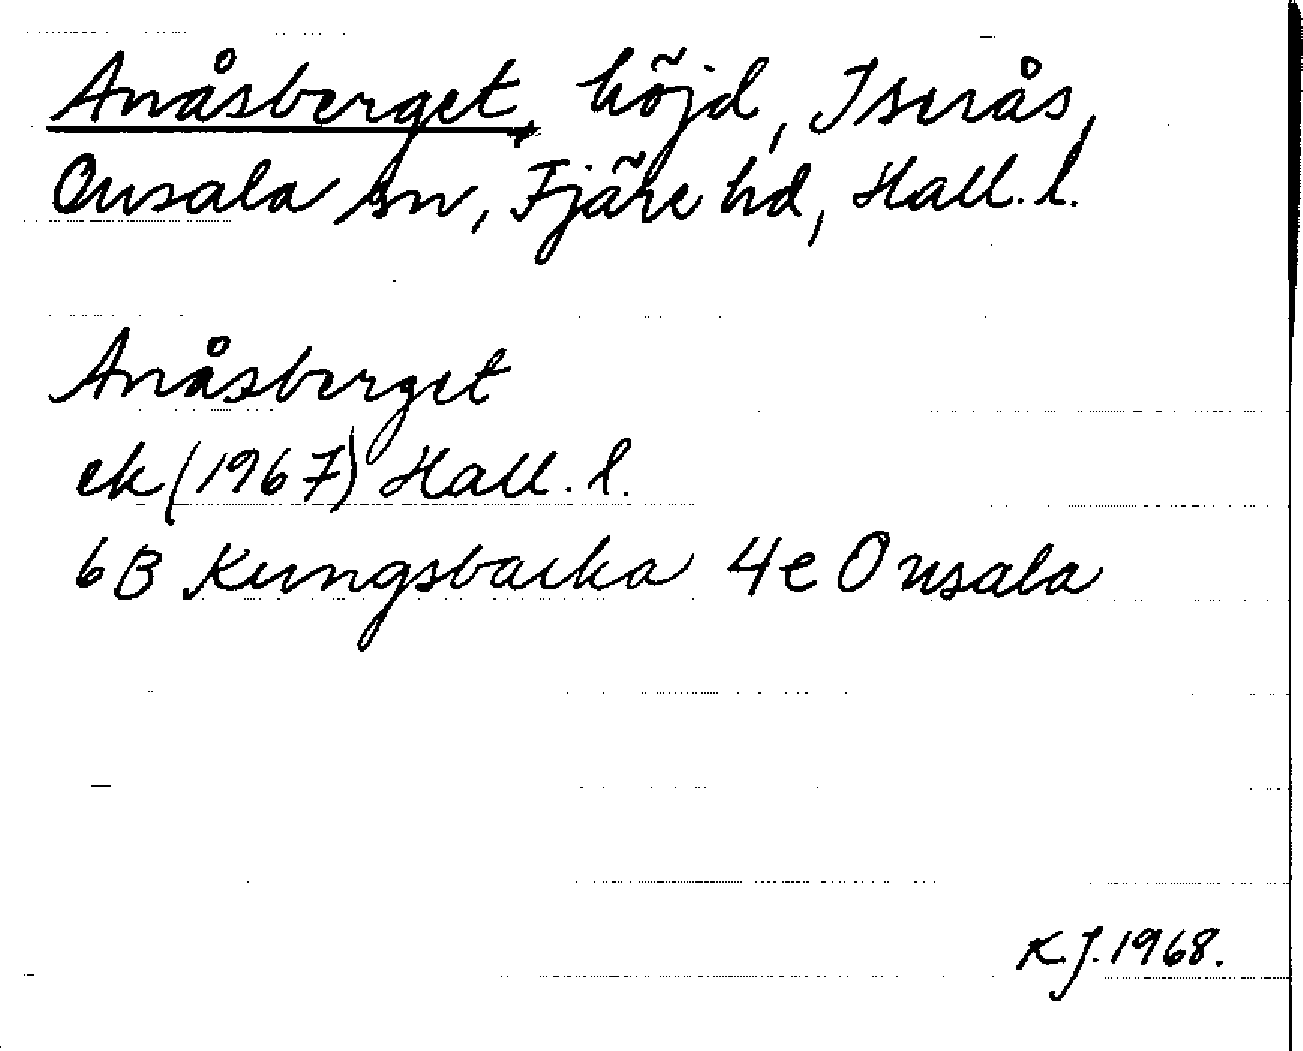 Anåsberget, höjd, Iserås,
Onsala sn, Fjäre hd, Hall. l.
Anåsberget
ek (1967) Hall. l.
6B Kungsbacka 4e Onsala
K.J. 1968.